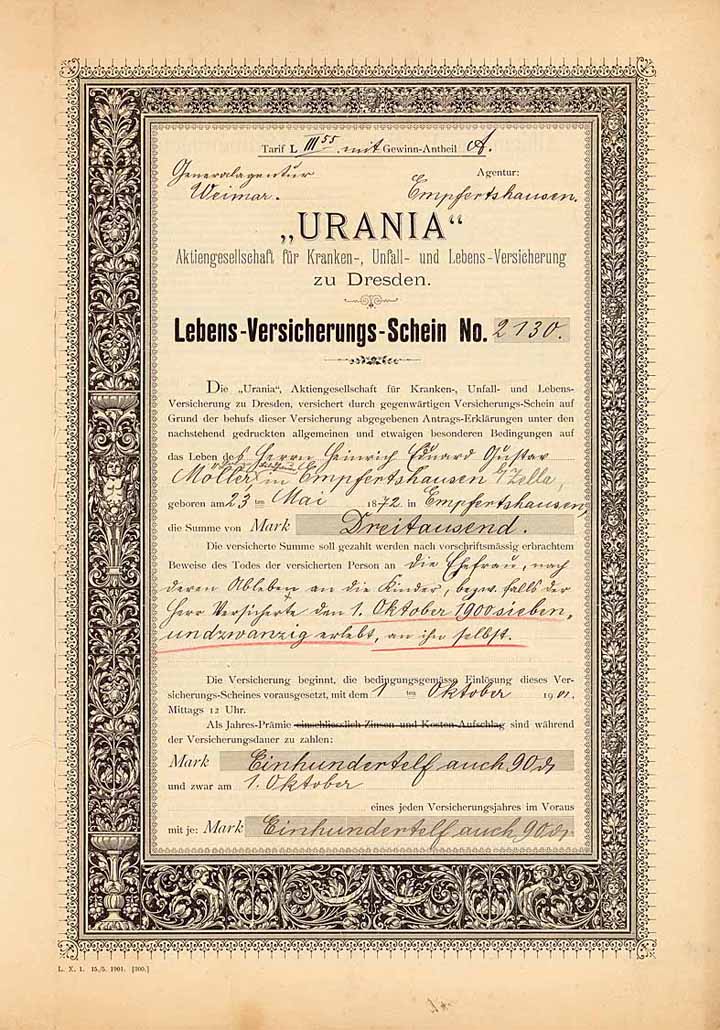 Tarif L III 55 mit Gewinn-Antheil A.
Generalagentur Agentur:
Weimar. Empfertshausen.
„URANIA“
Aktiengesellschaft für Kranken-, Unfall- und Lebens-Versicherung
zu Dresden.
Lebens-Versicherungs-Schein No. 2130.
Die „Urania“, Aktiengesellschaft für Kranken-, Unfall- und Lebens-
Versicherung zu Dresden, versichert durch gegenwärtigen Versicherungs-Schein auf
Grund der behufs dieser Versicherung abgegebenen Antrags-Erklärungen unter den
nachstehend gedruckten allgemeinen und etwaigen besonderen Bedingungen auf
das Leben des Herrn Heinrich Eduard Gustav
Möller in Empfertshausen b/Zella,
geboren am 23 ten Mai 1872 in Empfertshausen,
die Summe von Mark Dreitausend.
Die versicherte Summe soll gezahlt werden nach vorschriftsmässig erbrachtem
Beweise des Todes der versicherten Person an die Ehefrau, nach
deren Ableben an die Kinder, bezw. falls der
Herr Versicherte den 1. Oktober 1900 sieben
undzwanzig erlebt, an ihn selbst.
Die Versicherung beginnt, die bedingungsgemässe Einlösung dieses Ver-
sicherungs-Scheines vorausgesetzt, mit dem 1 ten Oktober 1901.
Mittags 12 Uhr.
Als Jahres-Prämie einschliesslich Zinsen und Kosten-Aufschlag sind während
der Versicherungsdauer zu zahlen:
Mark Einhundertelf auch 90 d
und zwar am 1. Oktober
eines jeden Versicherungsjahres im Voraus
mit je: Mark Einhundertelf auch 90 d
L. X. 1. 15./5. 1901. [300.]